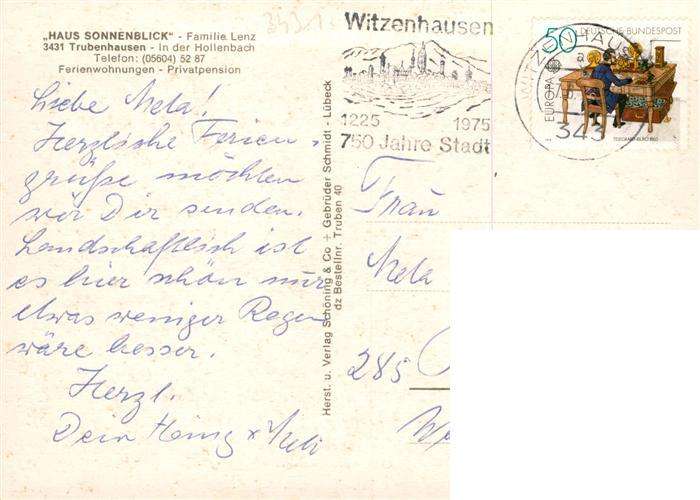 „HAUS SONNENBLICK" - Familie Lenz
3431 Trubenhausen - In der Hollenbach
Telefon: (05604) 52 87
Ferienwohnungen - Privatpension
Liebe Meta!
Herzliche Ferien-
grüße möchten
wir Dir senden.
Landschaftlich ist
es hier schön nur
etwas weniger Regen
wäre besser.
Herzl.
Dein Heinz
Herst. u. Verlag Schöning & Co + Gebrüder Schmidt - Lübeck
dz Bestellnr. Truben 40
Witzenhausen
1225 1975
750 Jahre Stadt
WITZENHAUS
343
50 DEUTSCHE BUNDESPOST
EUROPA
Frau
Meta
285